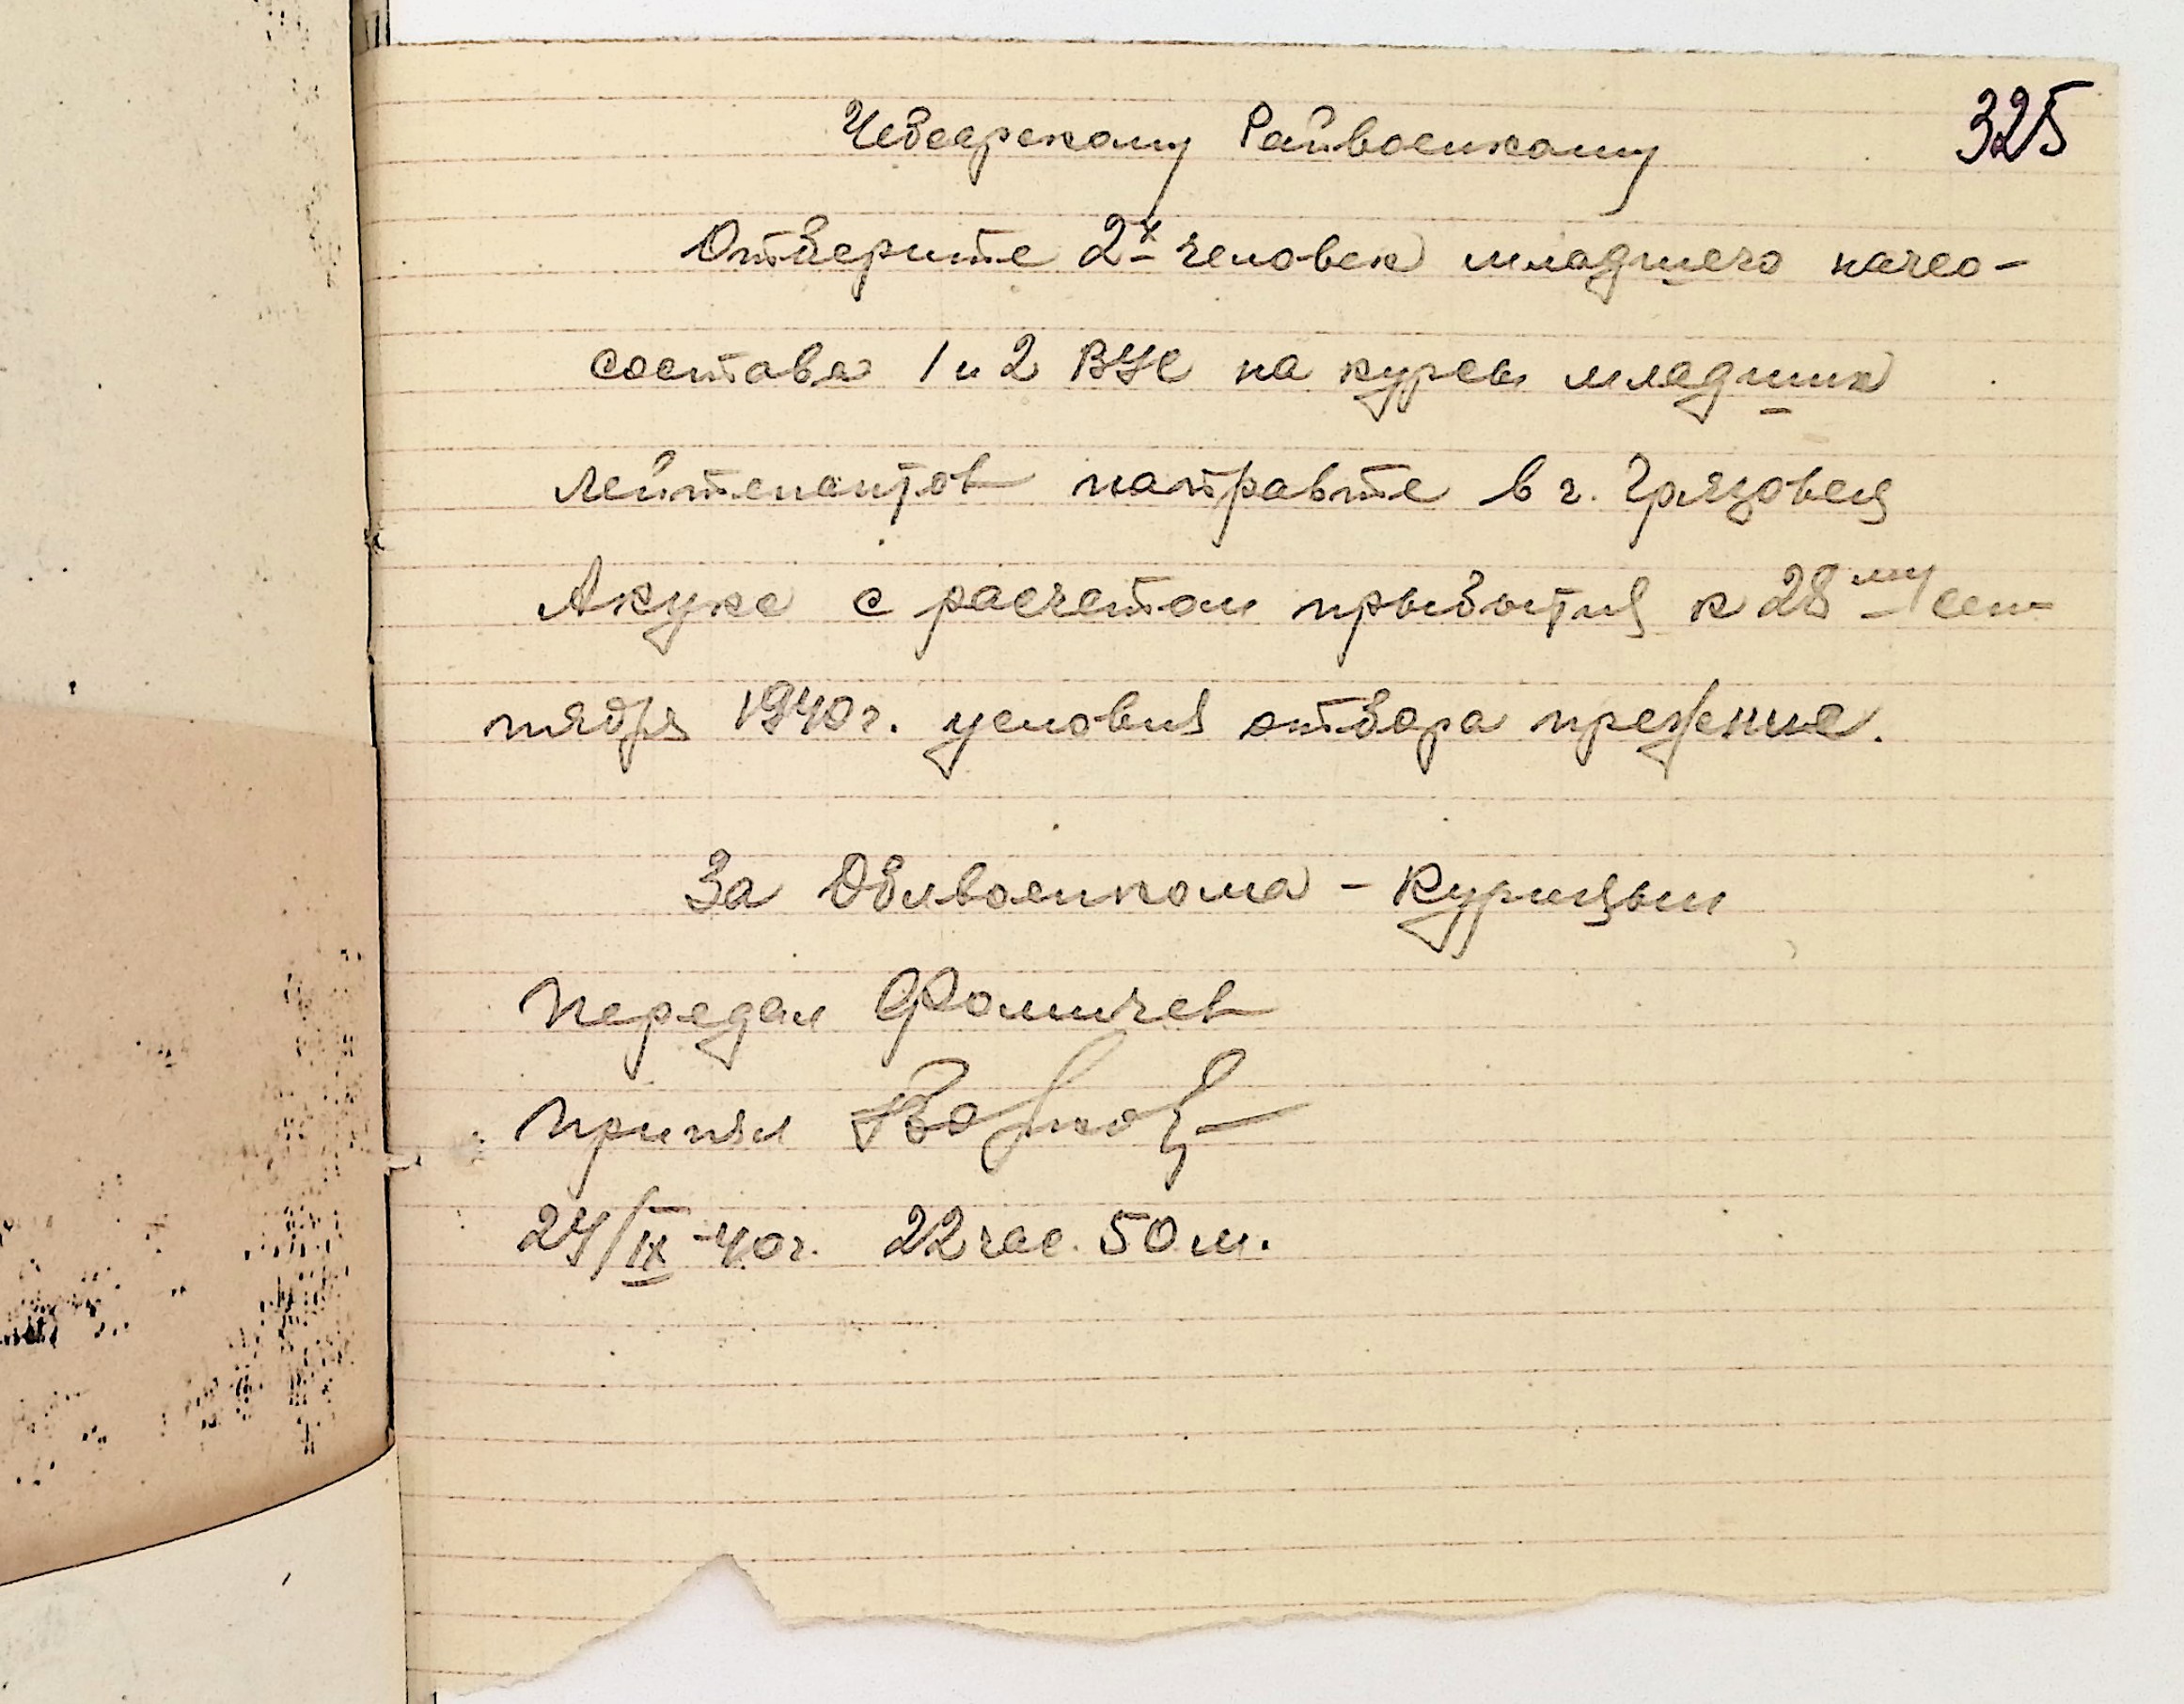 325
Чебсарскому Райвоенкому
Отберите 2х человек младшего начсо-
става 1 и 2 ВУС на курсы младших
лейтенантов направте в г. Грязовец
Акукс с расчетом прибытия к 28му сен-
тября 1940г. условия отбора прежние.
За Облвоенкома - Курицын
Передал Фомичев
Принял
24/IX-40г. 22 час. 50 м.